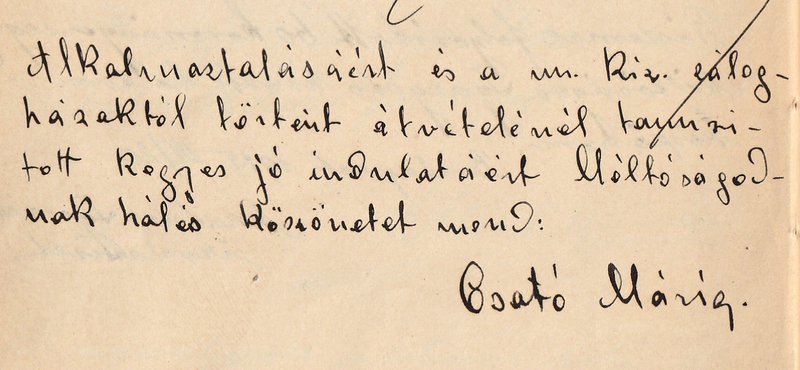 Alkalmaztatásáért és a m. kir. zálog-
házaktól történt átvételénél tanusi-
tott kegyes jó indulatáért Méltóságod-
nak hálás köszönetet mond:
Csató Mária.